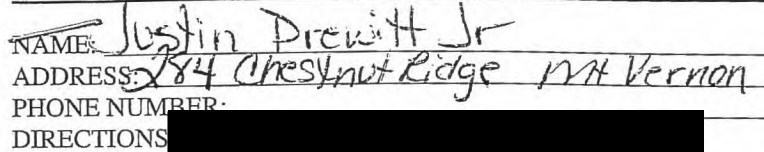 NAME: Justin Prewitt Jr
ADDRESS: 284 Chestnut Ridge Mt Vernon
PHONE NUMBER:
DIRECTIONS